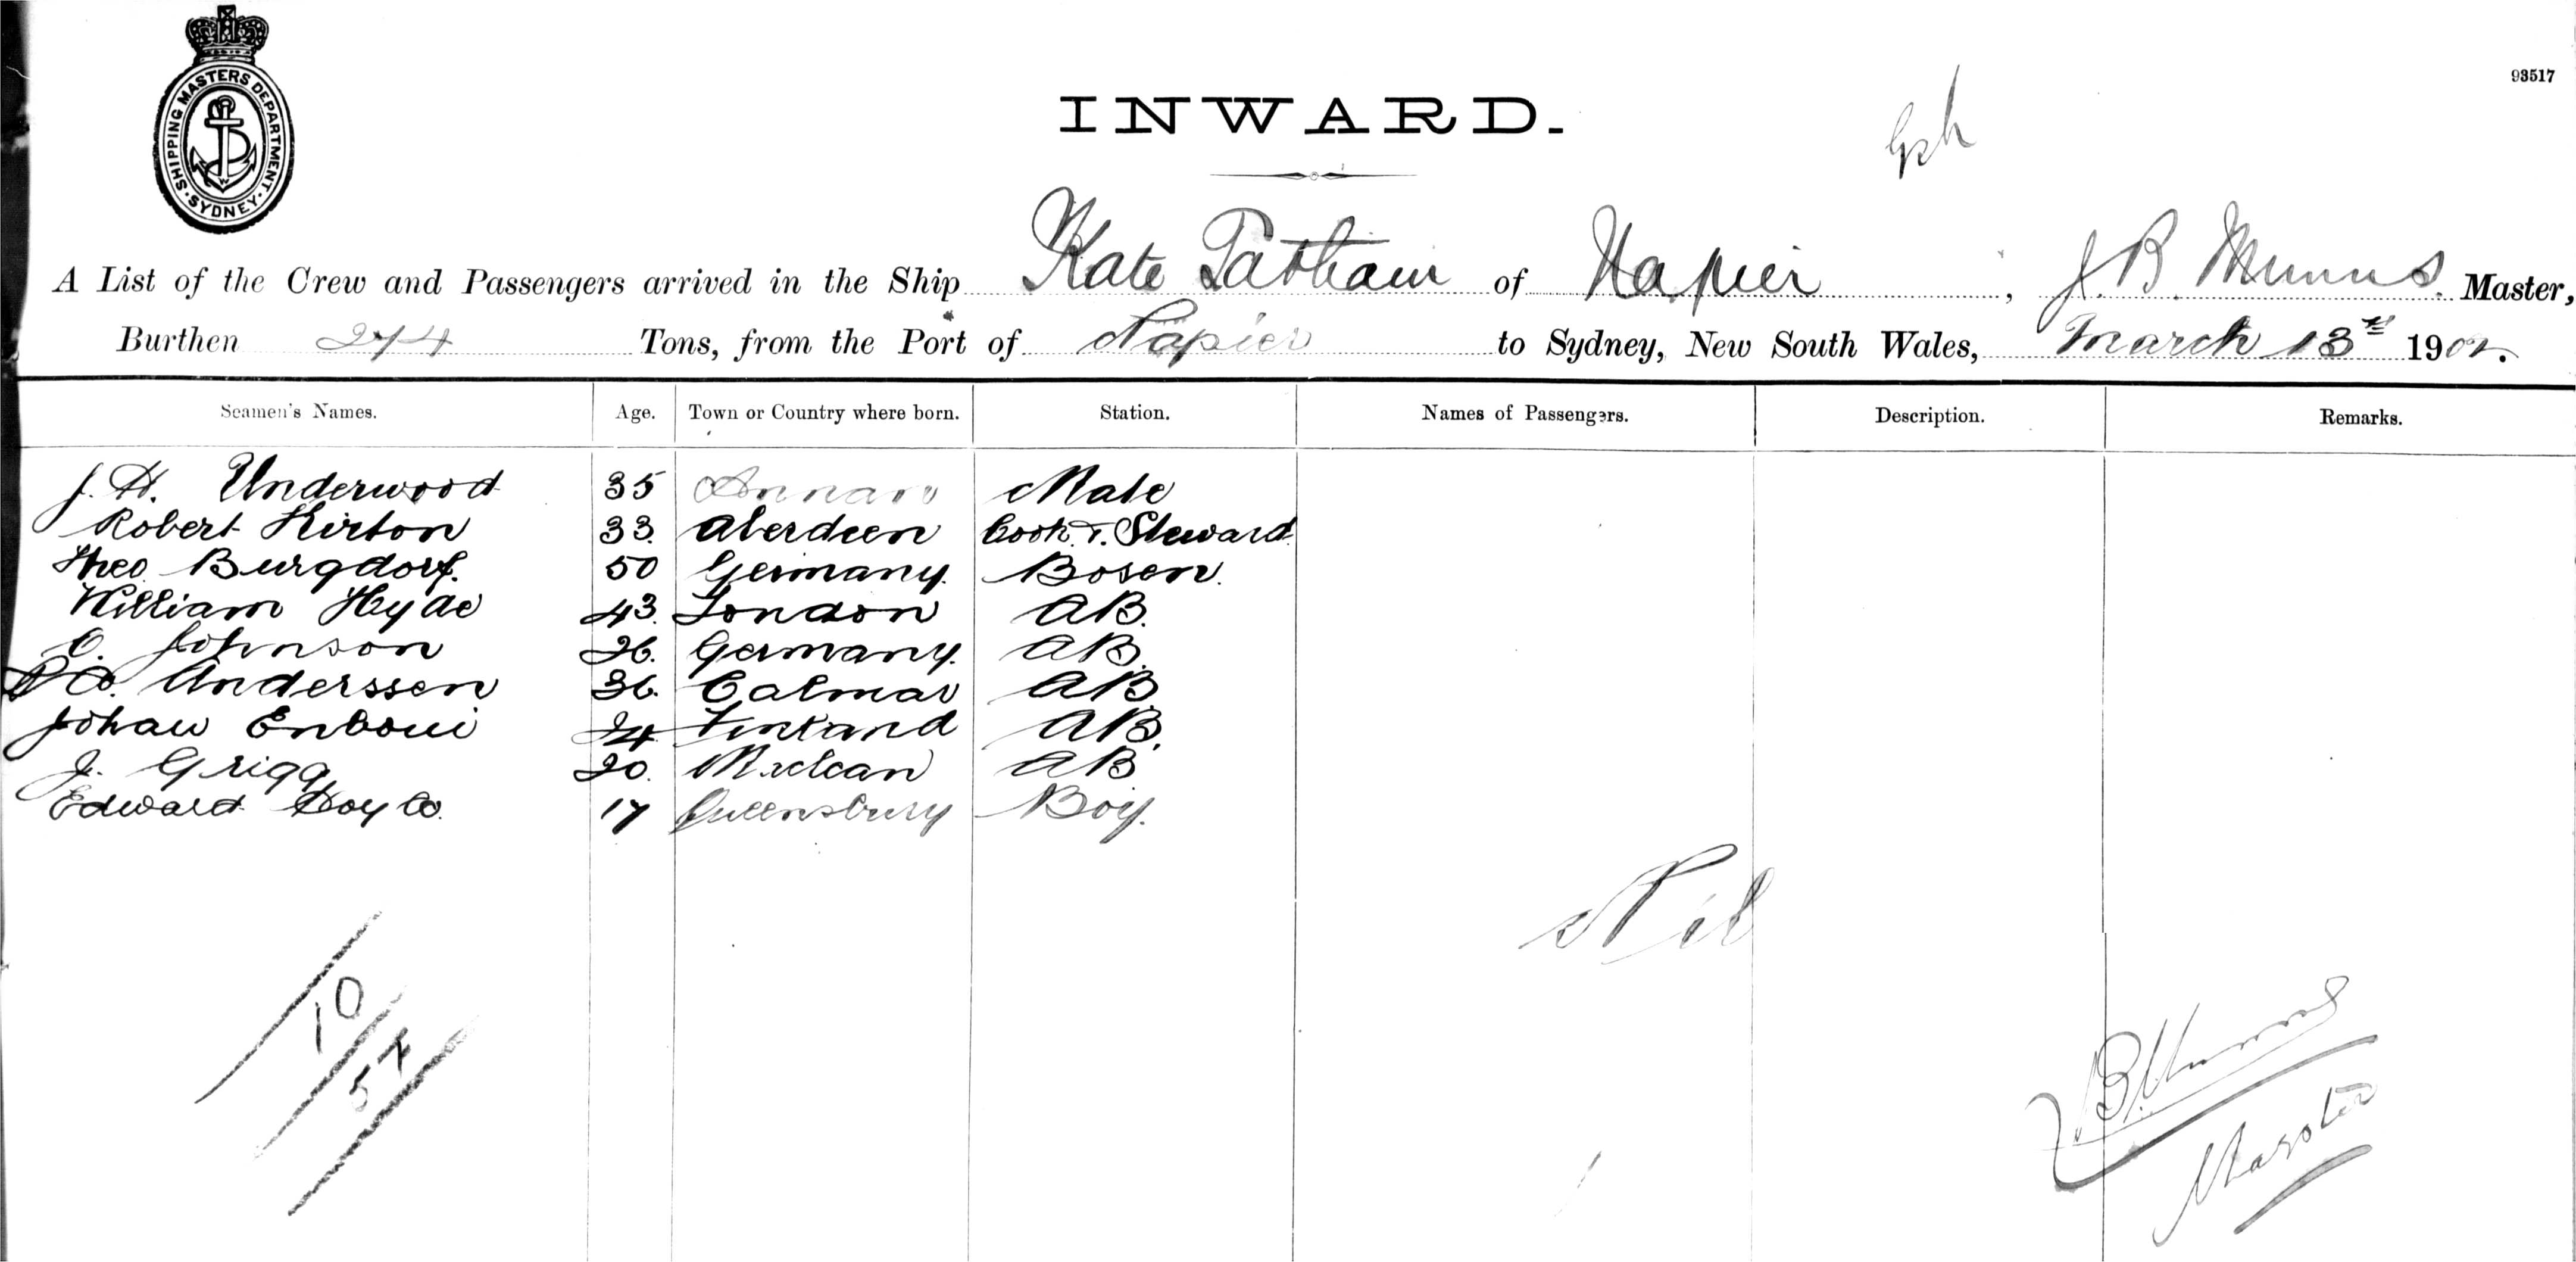 SHIPPING MASTERS DEPARTMENT. SYDNEY.
93517
INWARD.
A List of the Crew and Passengers arrived in the Ship Kate Tatham of Napier, J. B. Munns. Master,
Burthen 274 Tons, from the Port of Napier to Sydney, New South Wales, March 13th 1902.
Seamen's Names. Age. Town or Country where born. Station. Names of Passengers. Description. Remarks.
J. H. Underwood 35 Annan Mate
Robert Kirton 33. Aberdeen Cook & Steward.
Theo Burgdorf. 50 Germany. Bosen.
William Hyde 43. London AB.
O. Johnson 26. Germany. AB.
Anderssen 36. Calmar AB.
Johan Enboui 24 Finland AB.
J. Grigg 20. Maclean AB
Edward Doyle. 17 Queensbury Boy.
Nil
10
57
J. B. Munns
Master